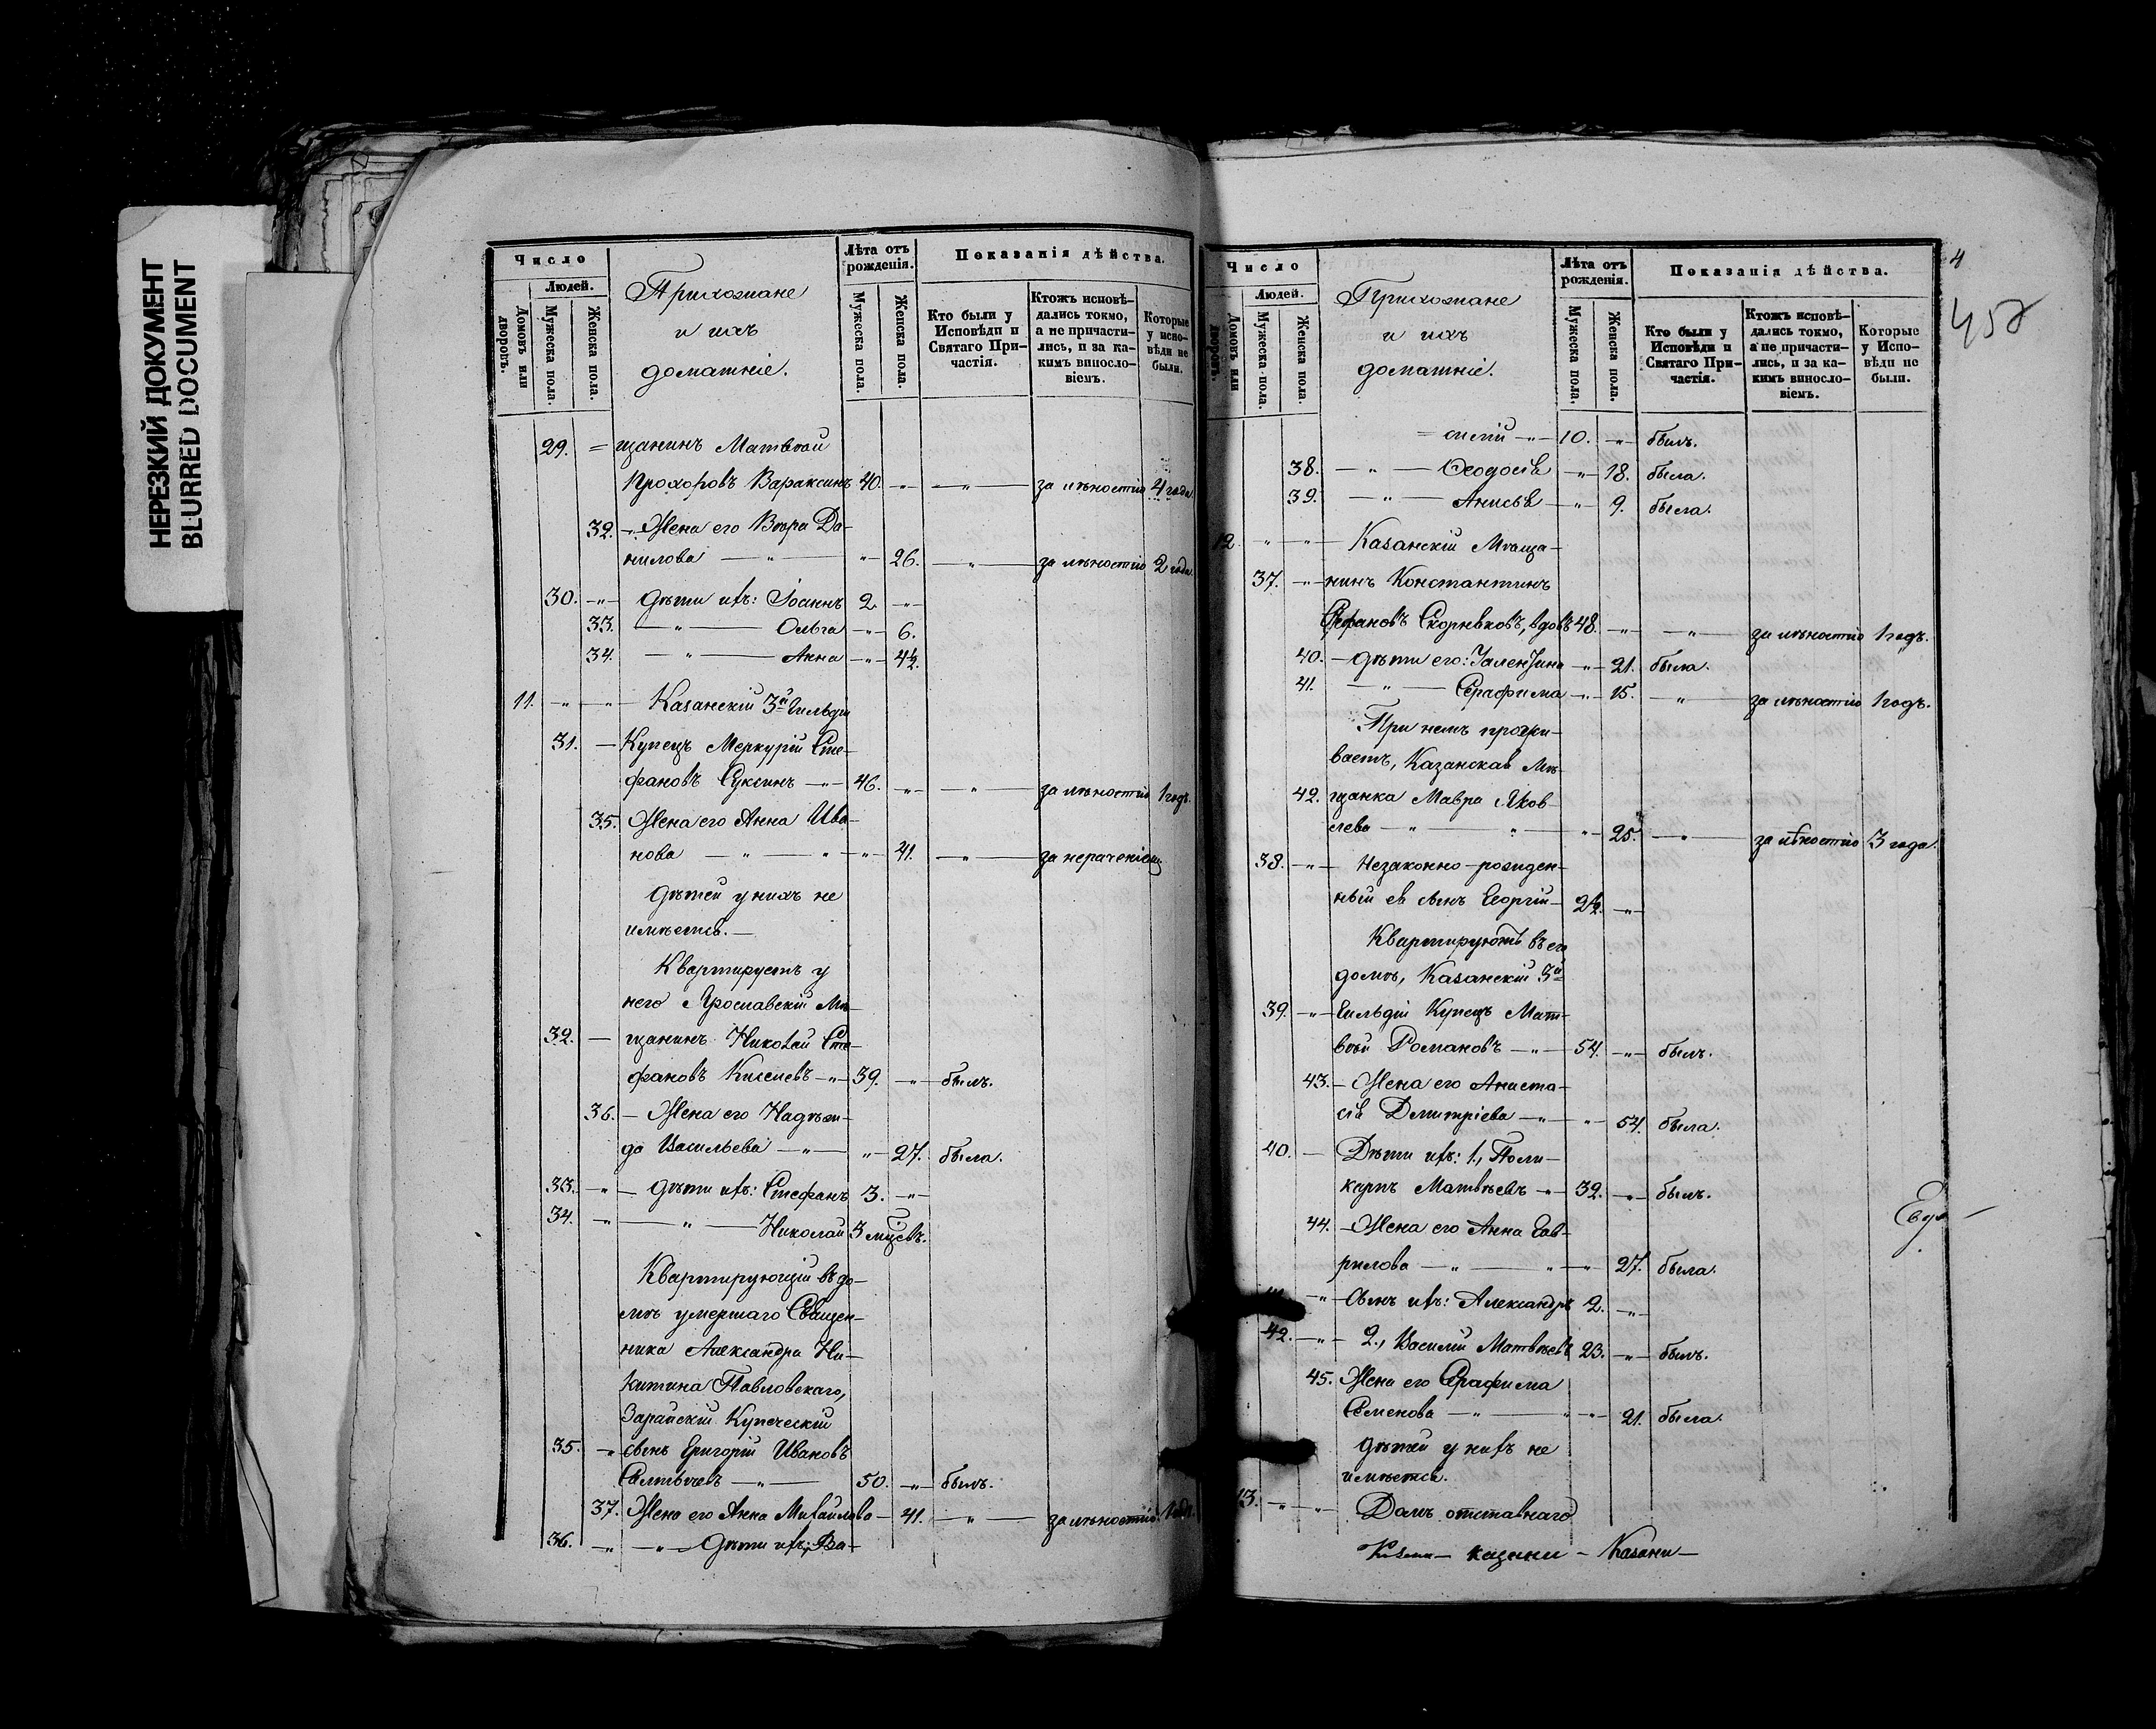 НЕРЕЗКИЙ ДОКУМЕНТ
BLURRED DOCUMENT
Число
Людей.
Домовъ или дворовъ.
Мужеска пола.
Женска пола.
Прихожане
и ихъ
домашніе.
Лѣта отъ рожденія.
Мужеска пола.
Женска пола.
Показанія дѣйства.
Кто были у Исповѣди и Святаго Причастія.
Ктожъ исповѣдались токмо, а не причастились, и за какимъ винословіемъ.
Которые у исповѣди не были.
29. = щанинъ Матвѣй
Прохоровъ Вараксинъ 40. за лѣностію 4 года
32. Жена его Вѣра Да-
нилова 26. за лѣностію 2 года
30. дѣти ихъ: Іоаннъ 2.
33. Ольга 6.
34. Анна 4½.
11. Казанскій 3й Гильдіи
31. Купецъ Меркурій Сте-
фановъ Суксинъ 46. за лѣностію 1 годъ.
35. Жена его Анна Ива-
нова 41. за нераченіемъ
дѣтей у нихъ не
имѣется.
Квартируетъ у
него Ярославскій Мѣ-
32. щанинъ Николай Сте-
фановъ Киселевъ 39. былъ.
36. Жена его Надѣж-
да Васильева 27. была.
33. дѣти ихъ: Стефанъ 3.
34. Николай 3 мцевъ.
Квартирующій въ до-
мѣ умершаго Священ-
ника Александра Ни-
китина Павловскаго,
Зарайскій Купеческій
35. сынъ Григорій Ивановъ
50. былъ.
37. Жена его Анна Михайлова 41. за лѣностію 1 годъ.
36. Дѣти ихъ: Ва-
4
Число
Людей.
Домовъ или дворовъ.
Мужеска пола.
Женска пола.
Прихожане
и ихъ
домашніе.
Лѣта отъ рожденія.
Мужеска пола.
Женска пола.
Показанія дѣйства.
Кто были у Исповѣди и Святаго Причастія.
Ктожъ исповѣдались токмо, а не причастились, и за какимъ винословіемъ.
Которые у Исповѣди не были.
= силій 10. былъ.
38. Ѳеодосія 18. была.
39. Анисья 9. была.
12. Казанскій Мѣща-
37. нинъ Константинъ
Стефановъ Скорняковъ, вдовъ 48. за лѣностію 1 годъ.
40. дѣти его: 21. была.
41. Серафима 15. за лѣностію 1 годъ.
При немъ прожи-
ваетъ, Казанская Мѣ-
42. щанка Мавра Яков-
лева 25. за лѣностію 3 года.
38. Незаконно-рожден-
ный ея сынъ Георгій 2½.
Квартируютъ въ его
домѣ, Казанскій 3й
39. Гильдіи Купецъ Мат-
вѣй Романовъ 54. былъ.
43. Жена его Анаста-
сія Димитріева 54. была.
40. Дѣти ихъ: 1., Поли-
карпъ Матвѣевъ 32. былъ.
44. Жена его Анна Гав-
рилова 27. была.
Сынъ ихъ: Александръ 2.
42. 2., Василій Матвѣевъ 23. былъ.
45. Жена его Серафима
Семенова 21. была.
дѣтей у нихъ не
имѣется.
13. Домъ отставнаго
казани - Казани